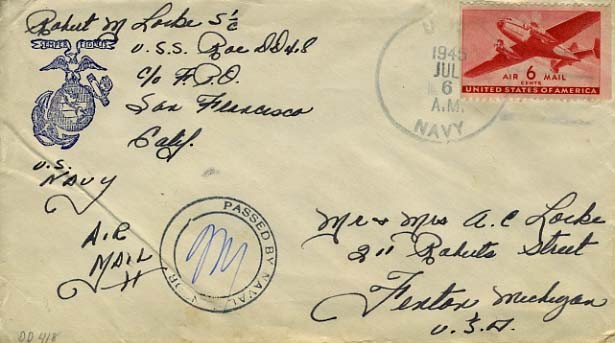 Robert M Locke S 1/c
U.S.S. Roe DD418
c/o F.P.O.
San Francisco
Calif.
SEMPER FIDELIS
U.S.
NAVY
AIR
MAIL
U
1945
JUL
6
A.M.
NAVY
AIR 6 MAIL
CENTS
UNITED STATES OF AMERICA
PASSED BY NAVAL
Mr + Mrs A.C Locke
211 Roberts Street
Fenton Michigan
U.S.A.
DD418